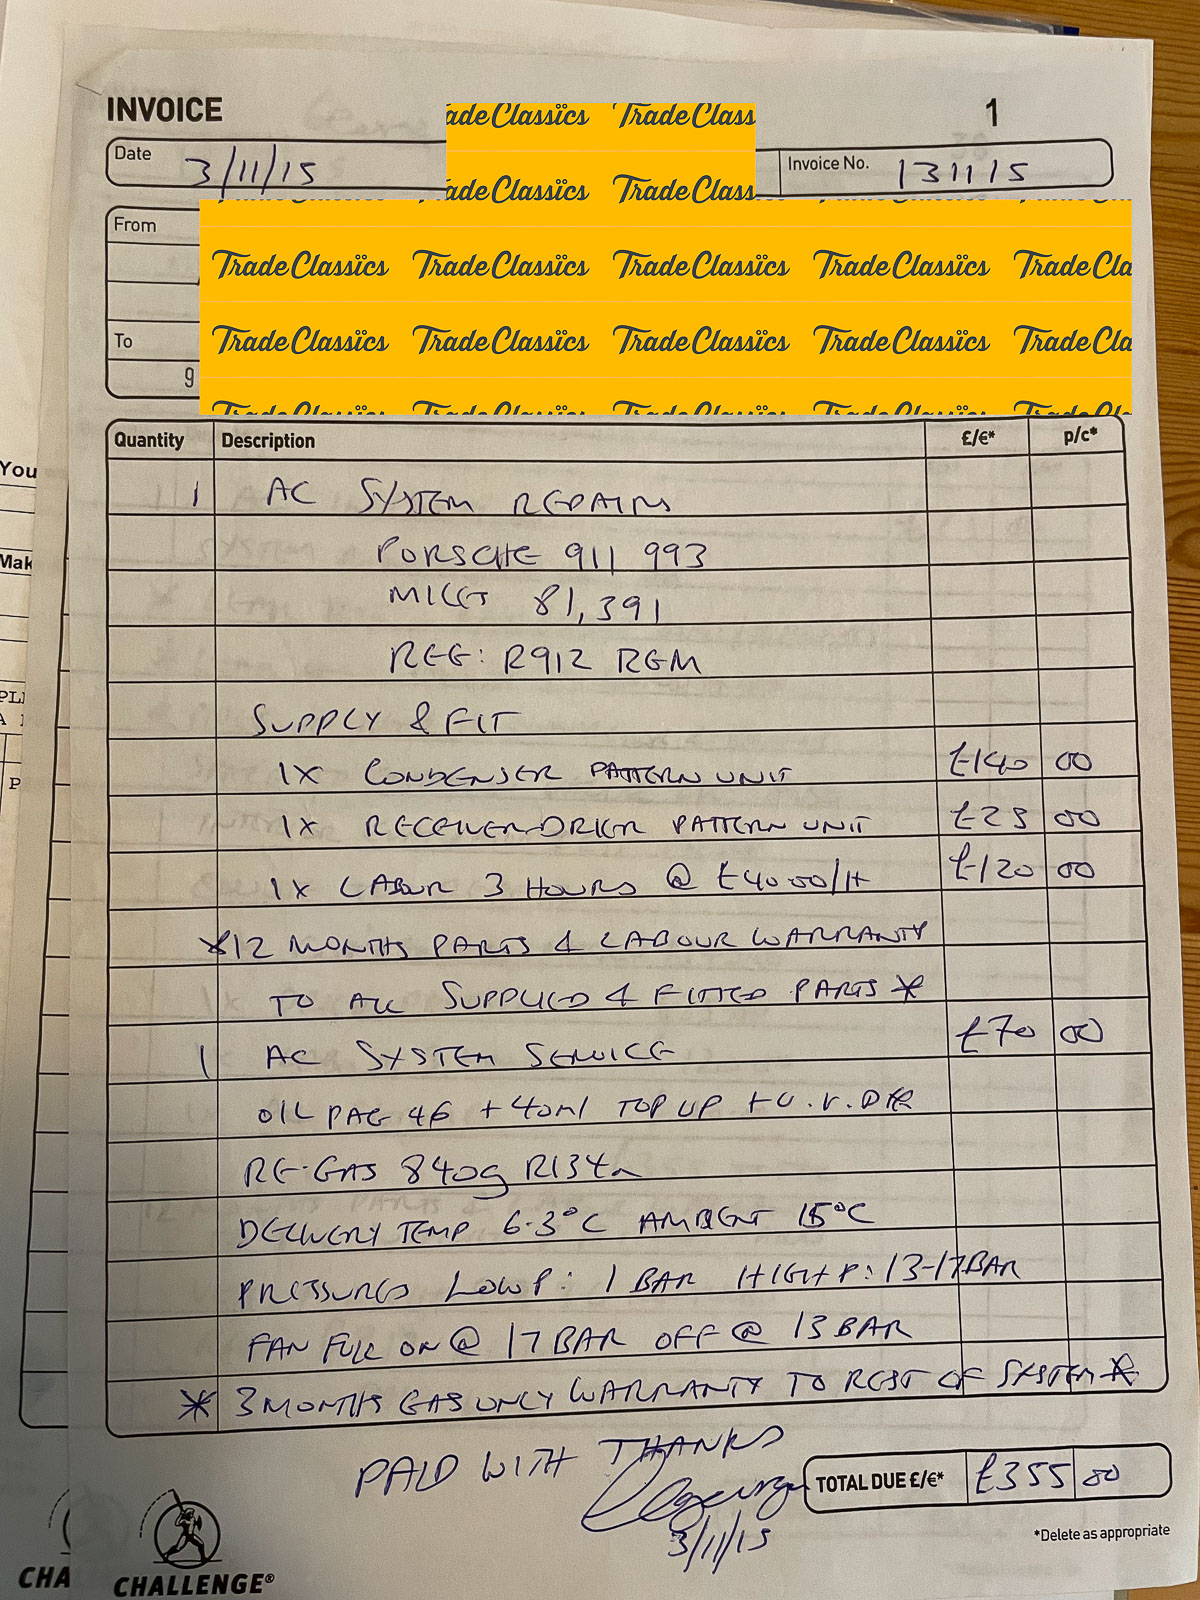 INVOICE
1
adeClassïcs TradeClass
Date 3/11/15
Invoice No. 131115
adeClassïcs TradeClass
From
TradeClassïcs TradeClassïcs TradeClassïcs TradeClassïcs TradeCla
To
TradeClassïcs TradeClassïcs TradeClassïcs TradeClassïcs TradeCla
9
Quantity Description £/€* p/c*
1 AC SYSTEM REPAIRS
PORSCHE 911 993
MILES 81,391
REG: R912 RGM
SUPPLY & FIT
1X CONDENSER PATTERN UNIT £140 00
1X RECEIVER-DRIER PATTERN UNIT £25 00
1X LABOUR 3 HOURS @ £40 00/H £120 00
*12 MONTHS PARTS & LABOUR WARRANTY
TO ALL SUPPLIED & FITTED PARTS *
1 AC SYSTEM SERVICE £70 00
OIL PAG 46 +40ml TOP UP + U.V. DYE
RE-GAS 840g R134a
DELIVERY TEMP 6.3°C AMBIENT 15°C
PRESSURES LOW P: 1 BAR HIGH P: 13-17BAR
FAN FULL ON @ 17 BAR OFF @ 13 BAR
* 3 MONTHS GAS ONLY WARRANTY TO REST OF SYSTEM *
PAID WITH THANKS
TOTAL DUE £/€* £355 00
3/11/15
*Delete as appropriate
CHALLENGE®
You
Mak
PLE
P
CHA